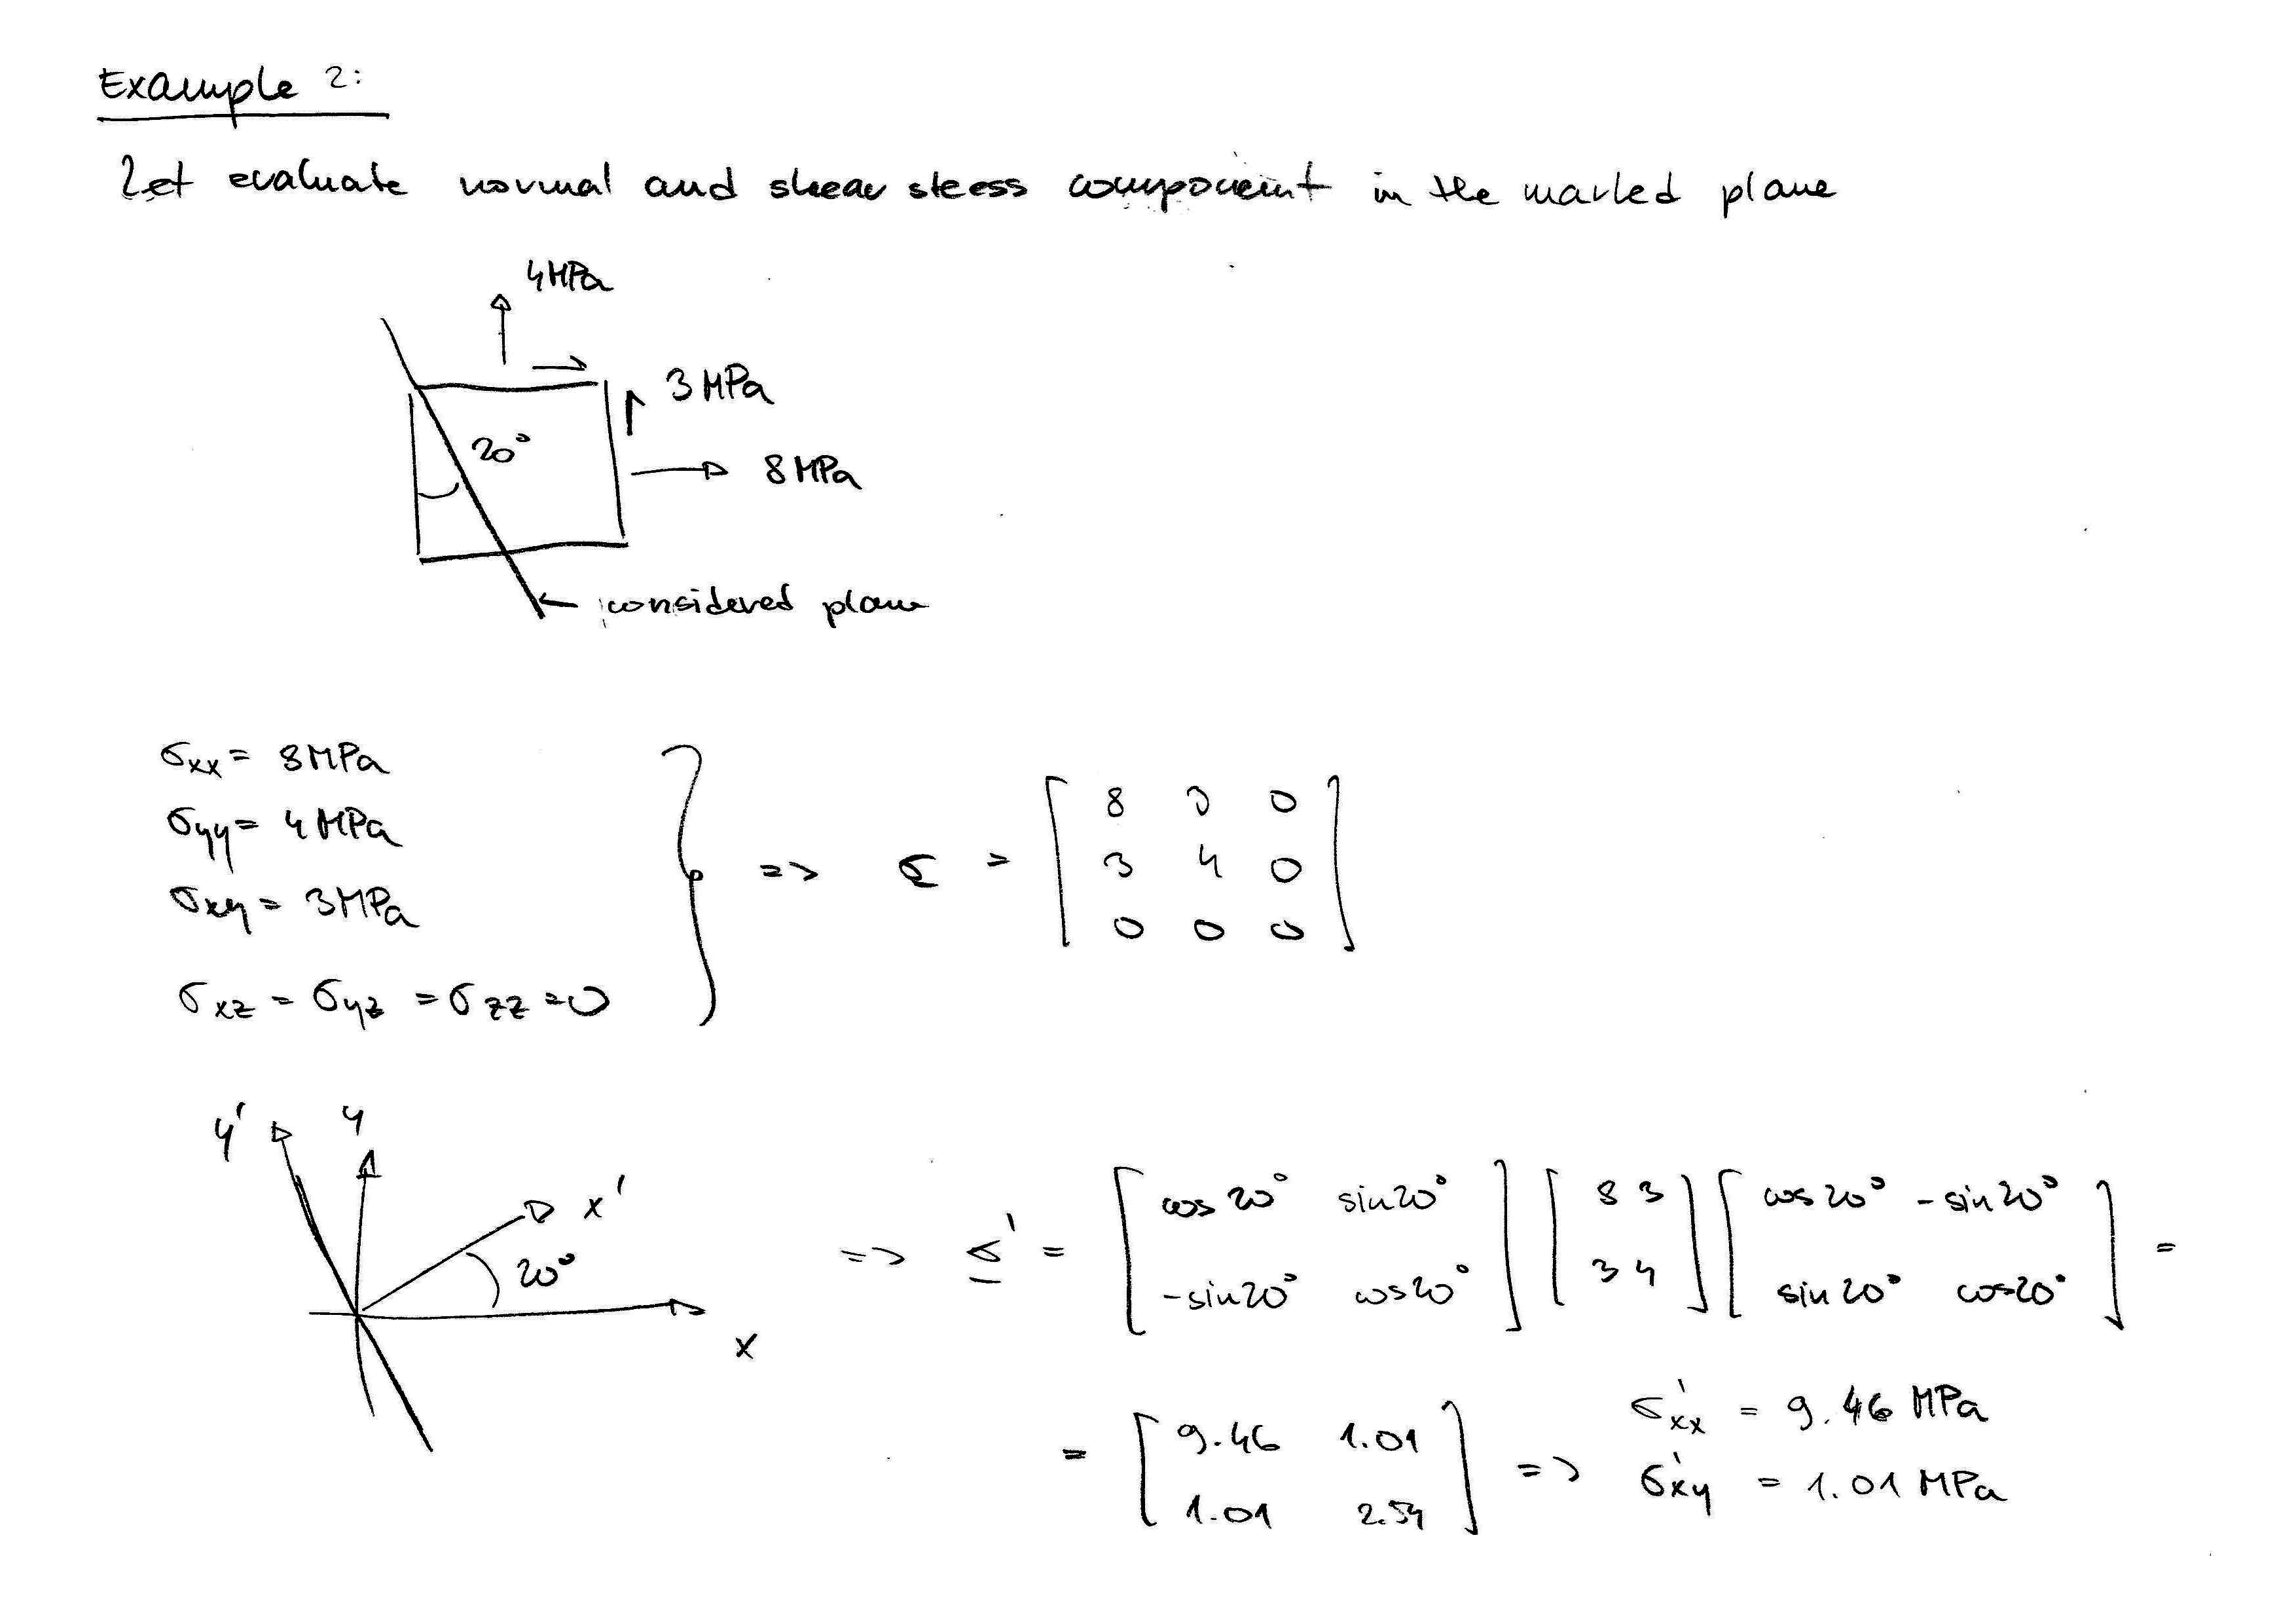 Example 2:
Let evaluate normal and shear stress component in the marked plane
4MPa
3 MPa
20°
8 MPa
considered plane
σxx = 8MPa
σyy = 4 MPa
σxy = 3MPa
σxz = σyz = σzz = 0
=> σ = [ 8 3 0
3 4 0
0 0 0 ]
y' y
x'
20°
x
=> σ' = [ cos 20° sin20° ] [ 8 3 ] [ cos 20° - sin 20° ] =
[ -sin20° cos20° ] [ 3 4 ] [ sin 20° cos20° ]
= [ 9.46 1.01 ] => σ'xx = 9.46 MPa
[ 1.01 2.54 ] σ'xy = 1.01 MPa